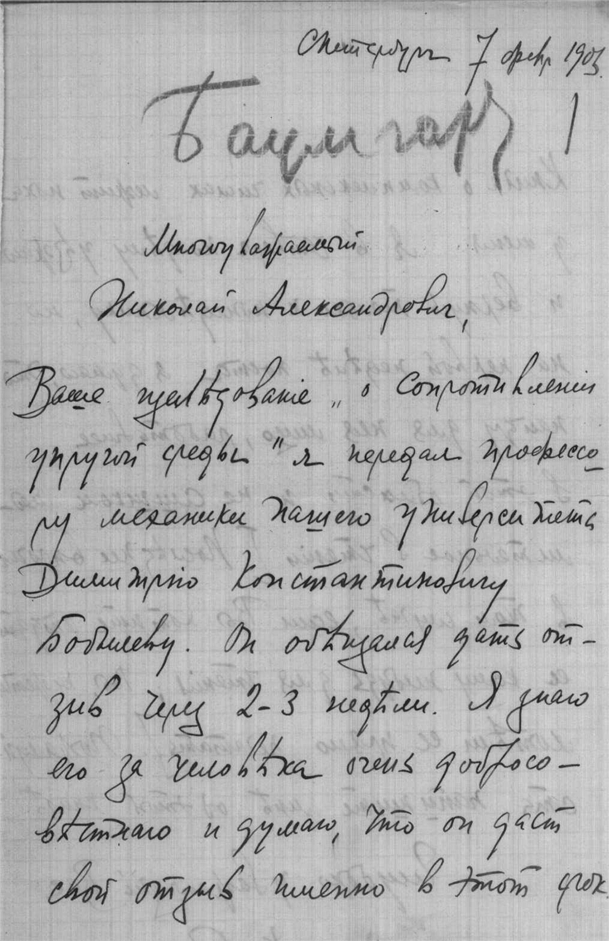 Петербург 7 февр 1903.
Баумгарт
Многоуважаемый
Николай Александрович,
Ваше изслѣдованіе „о сопротивленіи
упругой среды" я передал профессо-
ру механики нашего университета
Димитрію Константиновичу
Бобылеву. Он обѣщался дать от-
зыв через 2-3 недѣли. Я знаю
его за человѣка очень добросо-
вѣстнаго и думаю, что он даст
свой отзыв именно в этот срок.